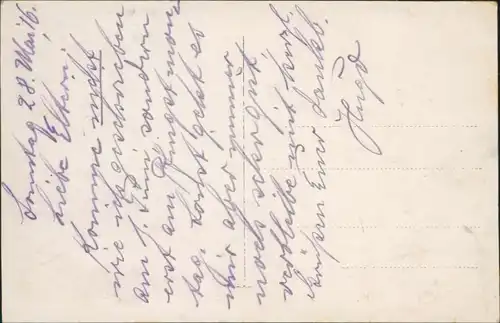 Sonntag 28. Mai 16.
Liebe Eltern!
Komme nicht
wie ich geschrieben
am 1. Juni sondern
erst am Pfingstmon=
tag, sonst geht es
mir aber immer
noch sehr gut
verbleibe mit herzl.
Grüßen Euer dankb.
Hugo